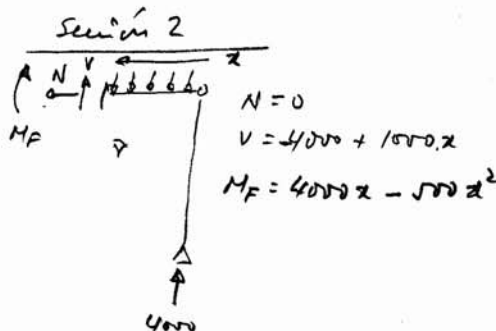 Sección 2
N V x
M_F
N = 0
V = -4000 + 1000.x
M_F = 4000x - 500x²
4000